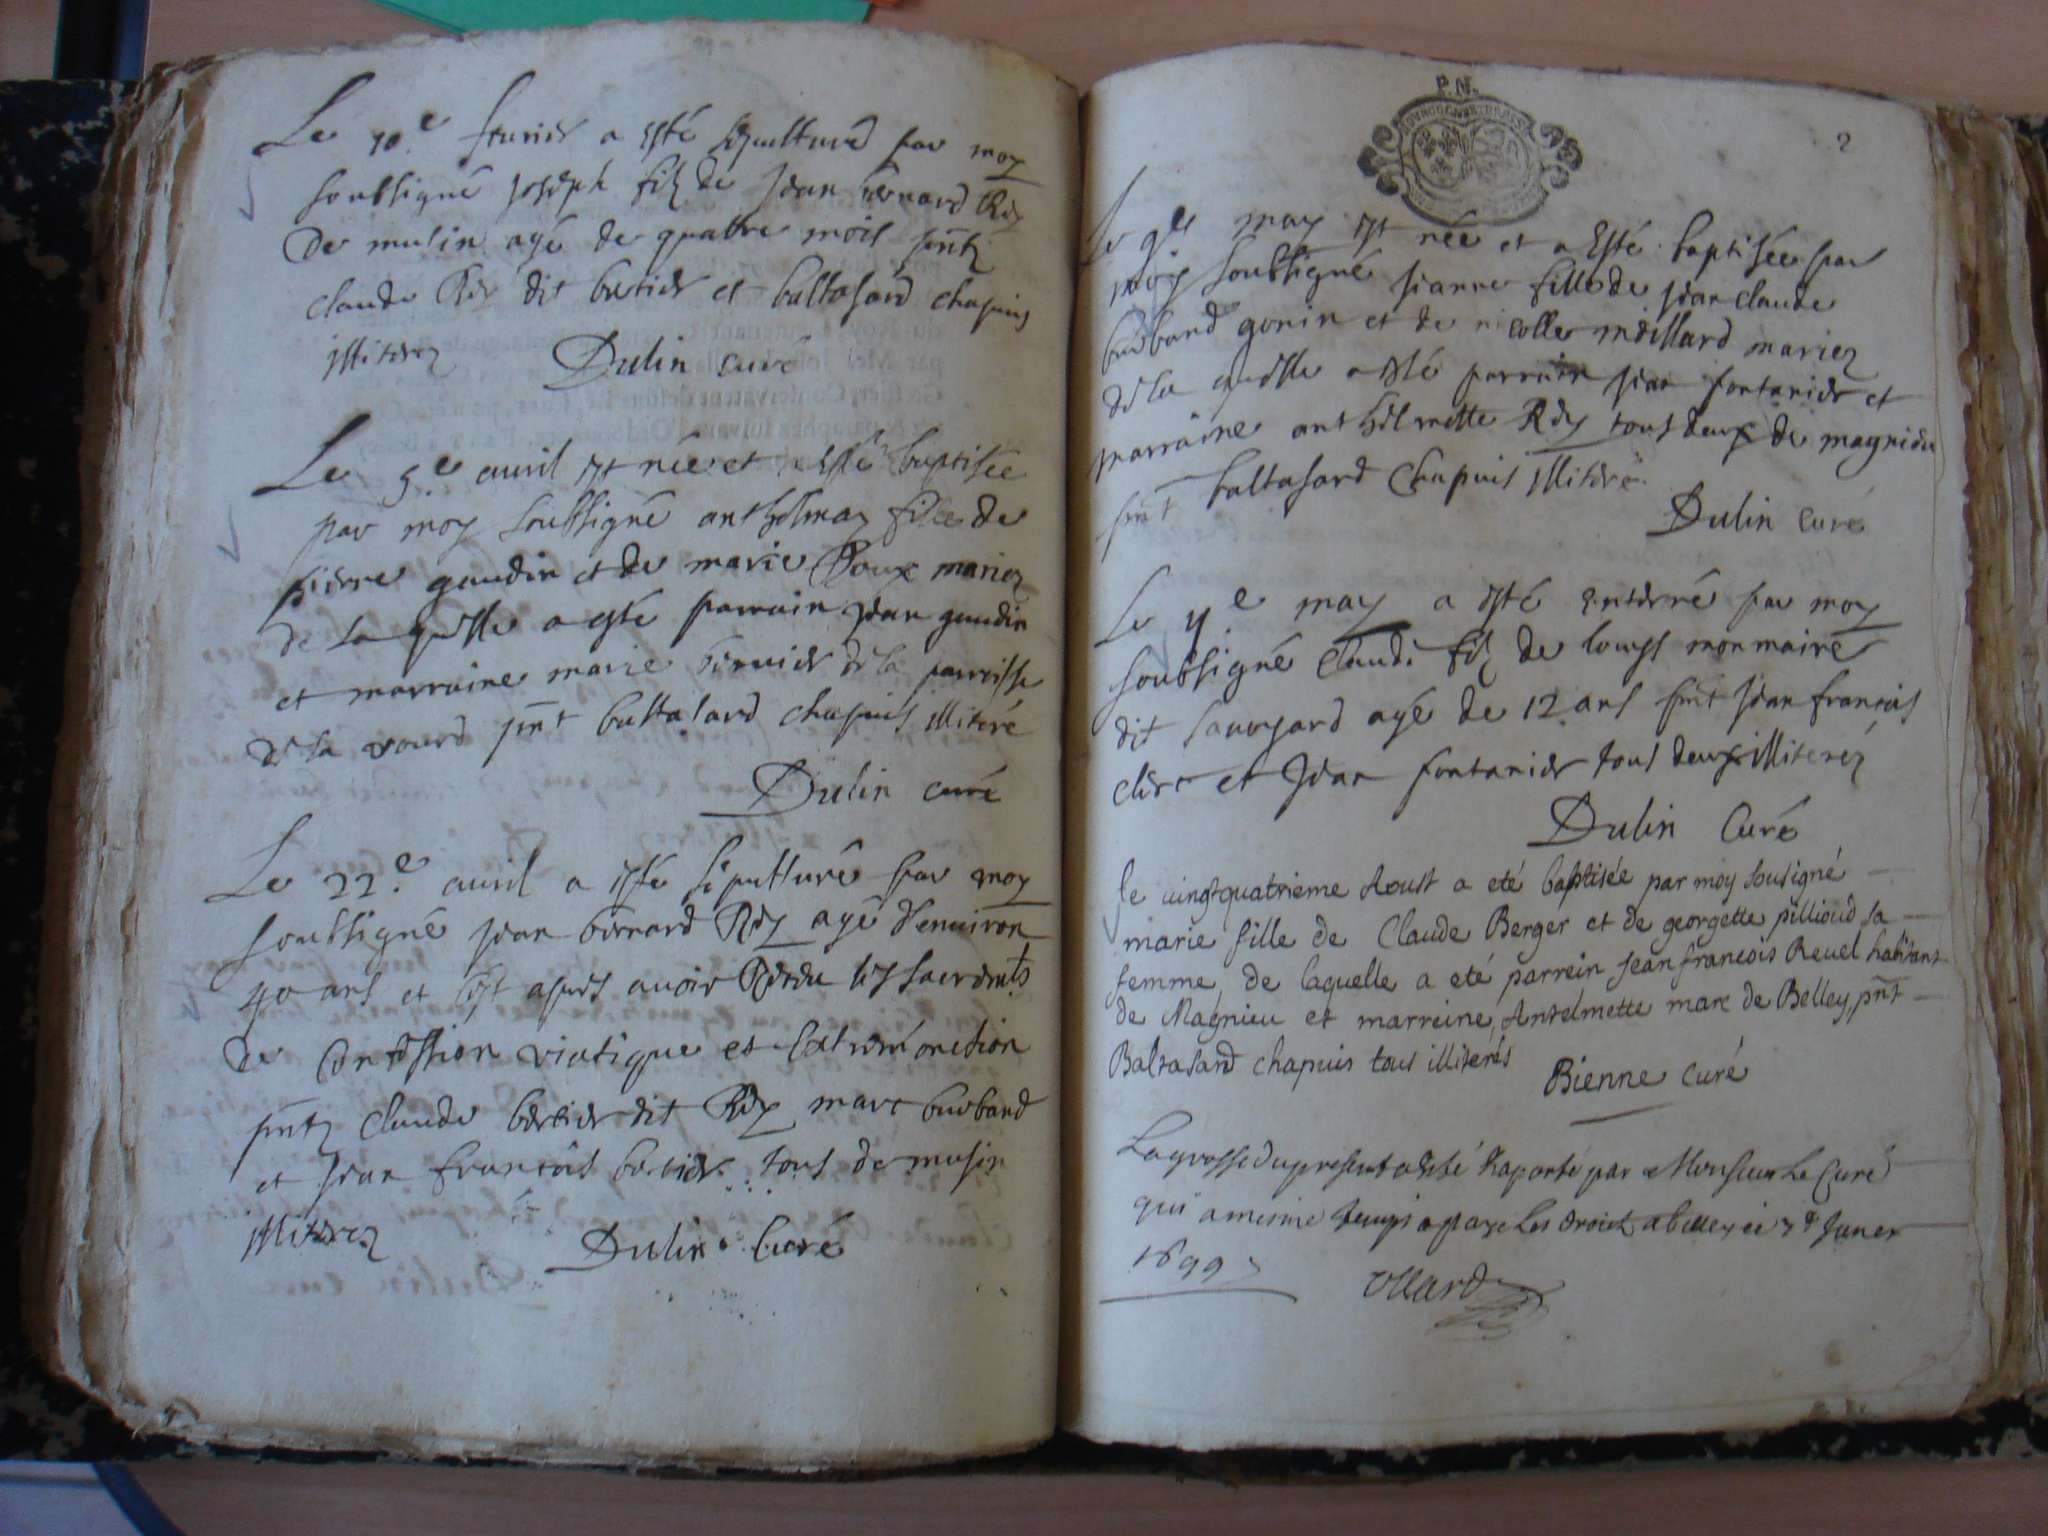 Le 10.e feurier a esté sepulturé par moy
soubsigné joseph filz de jean bernard Rey
de musin agé de quatre mois pntz
claude Rey dit bertier et baltasard chapuis
illiterez Dulin curé
Le 5.e auril est née et a esté baptisée
par moy soubsigné anthelmaz fille de
pierre gaudin et de marie Roux mariez
de laquelle a esté parrain jean gaudin
et marraine marie beruier de la parroisse
de la pnt baltasard chapuis illiteré
Dulin curé
Le 22.e auril a esté sepulturé par moy
soubsigné jean bernard Rey agé d'enuiron
40 ans et c'est apres auoir les sacremts
de Confession viatique et extremonction
pntz claude bertier dit Rey marc burband
et jean francois bertier tous de musin
illiterez Dulin Curé
P.N.
2
Le 9e may est née et a esté baptisée par
moy soubsigné jeanne fille de jean claude
burband gonin et de nicolle meillard mariez
de la quelle a esté parrain jean fontanier et
marraine anthelmette Rey tous deux de magnieu
pnt baltasard chapuis illiteré
Dulin curé
Le 11.e may a esté enterré par moy
soubsigné claude filz de louys monmaire
dit sauoyard agé de 12 ans pnt jean francois
clerc et Jean fontanier tous deux illiterez
Dulin Curé
le vingt quatrieme Aoust a eté baptisée par moy sousigné
marie fille de Claude Berger et de georgette pillioud sa
femme, de laquelle a eté parrein jean francois Reuel habitant
de Magnieu et marreine Antelmette marc de Belley, pnt
Baltasard chapuis tous illiterés Bienne curé
La grosse du present a esté Raporté par Monsieur Le Curé
qui a mesme temps a paye les droict a belley ce 7e Januer
1699 Ollard